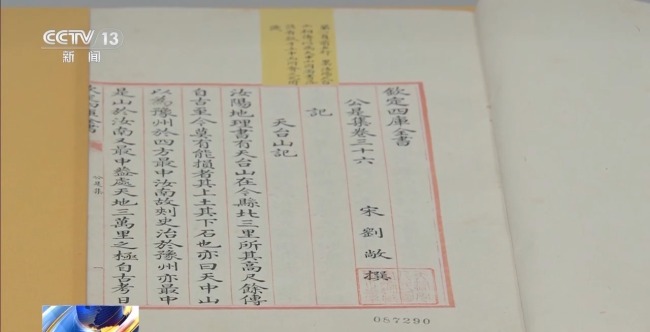 CCTV 13
新闻
欽定四庫全書
公是集卷三十六
宋 劉敞 撰
記
天台山記
汝陽地理書有天台山在今縣北三里所其高尺餘傳
自古至今莫有能損者其上土其下石也亦曰天中山
以為豫州於四方最中汝南故刺史治於豫州亦最中
是山於汝南又最中蓋處天地三萬里之極自古考日
公是集
087290